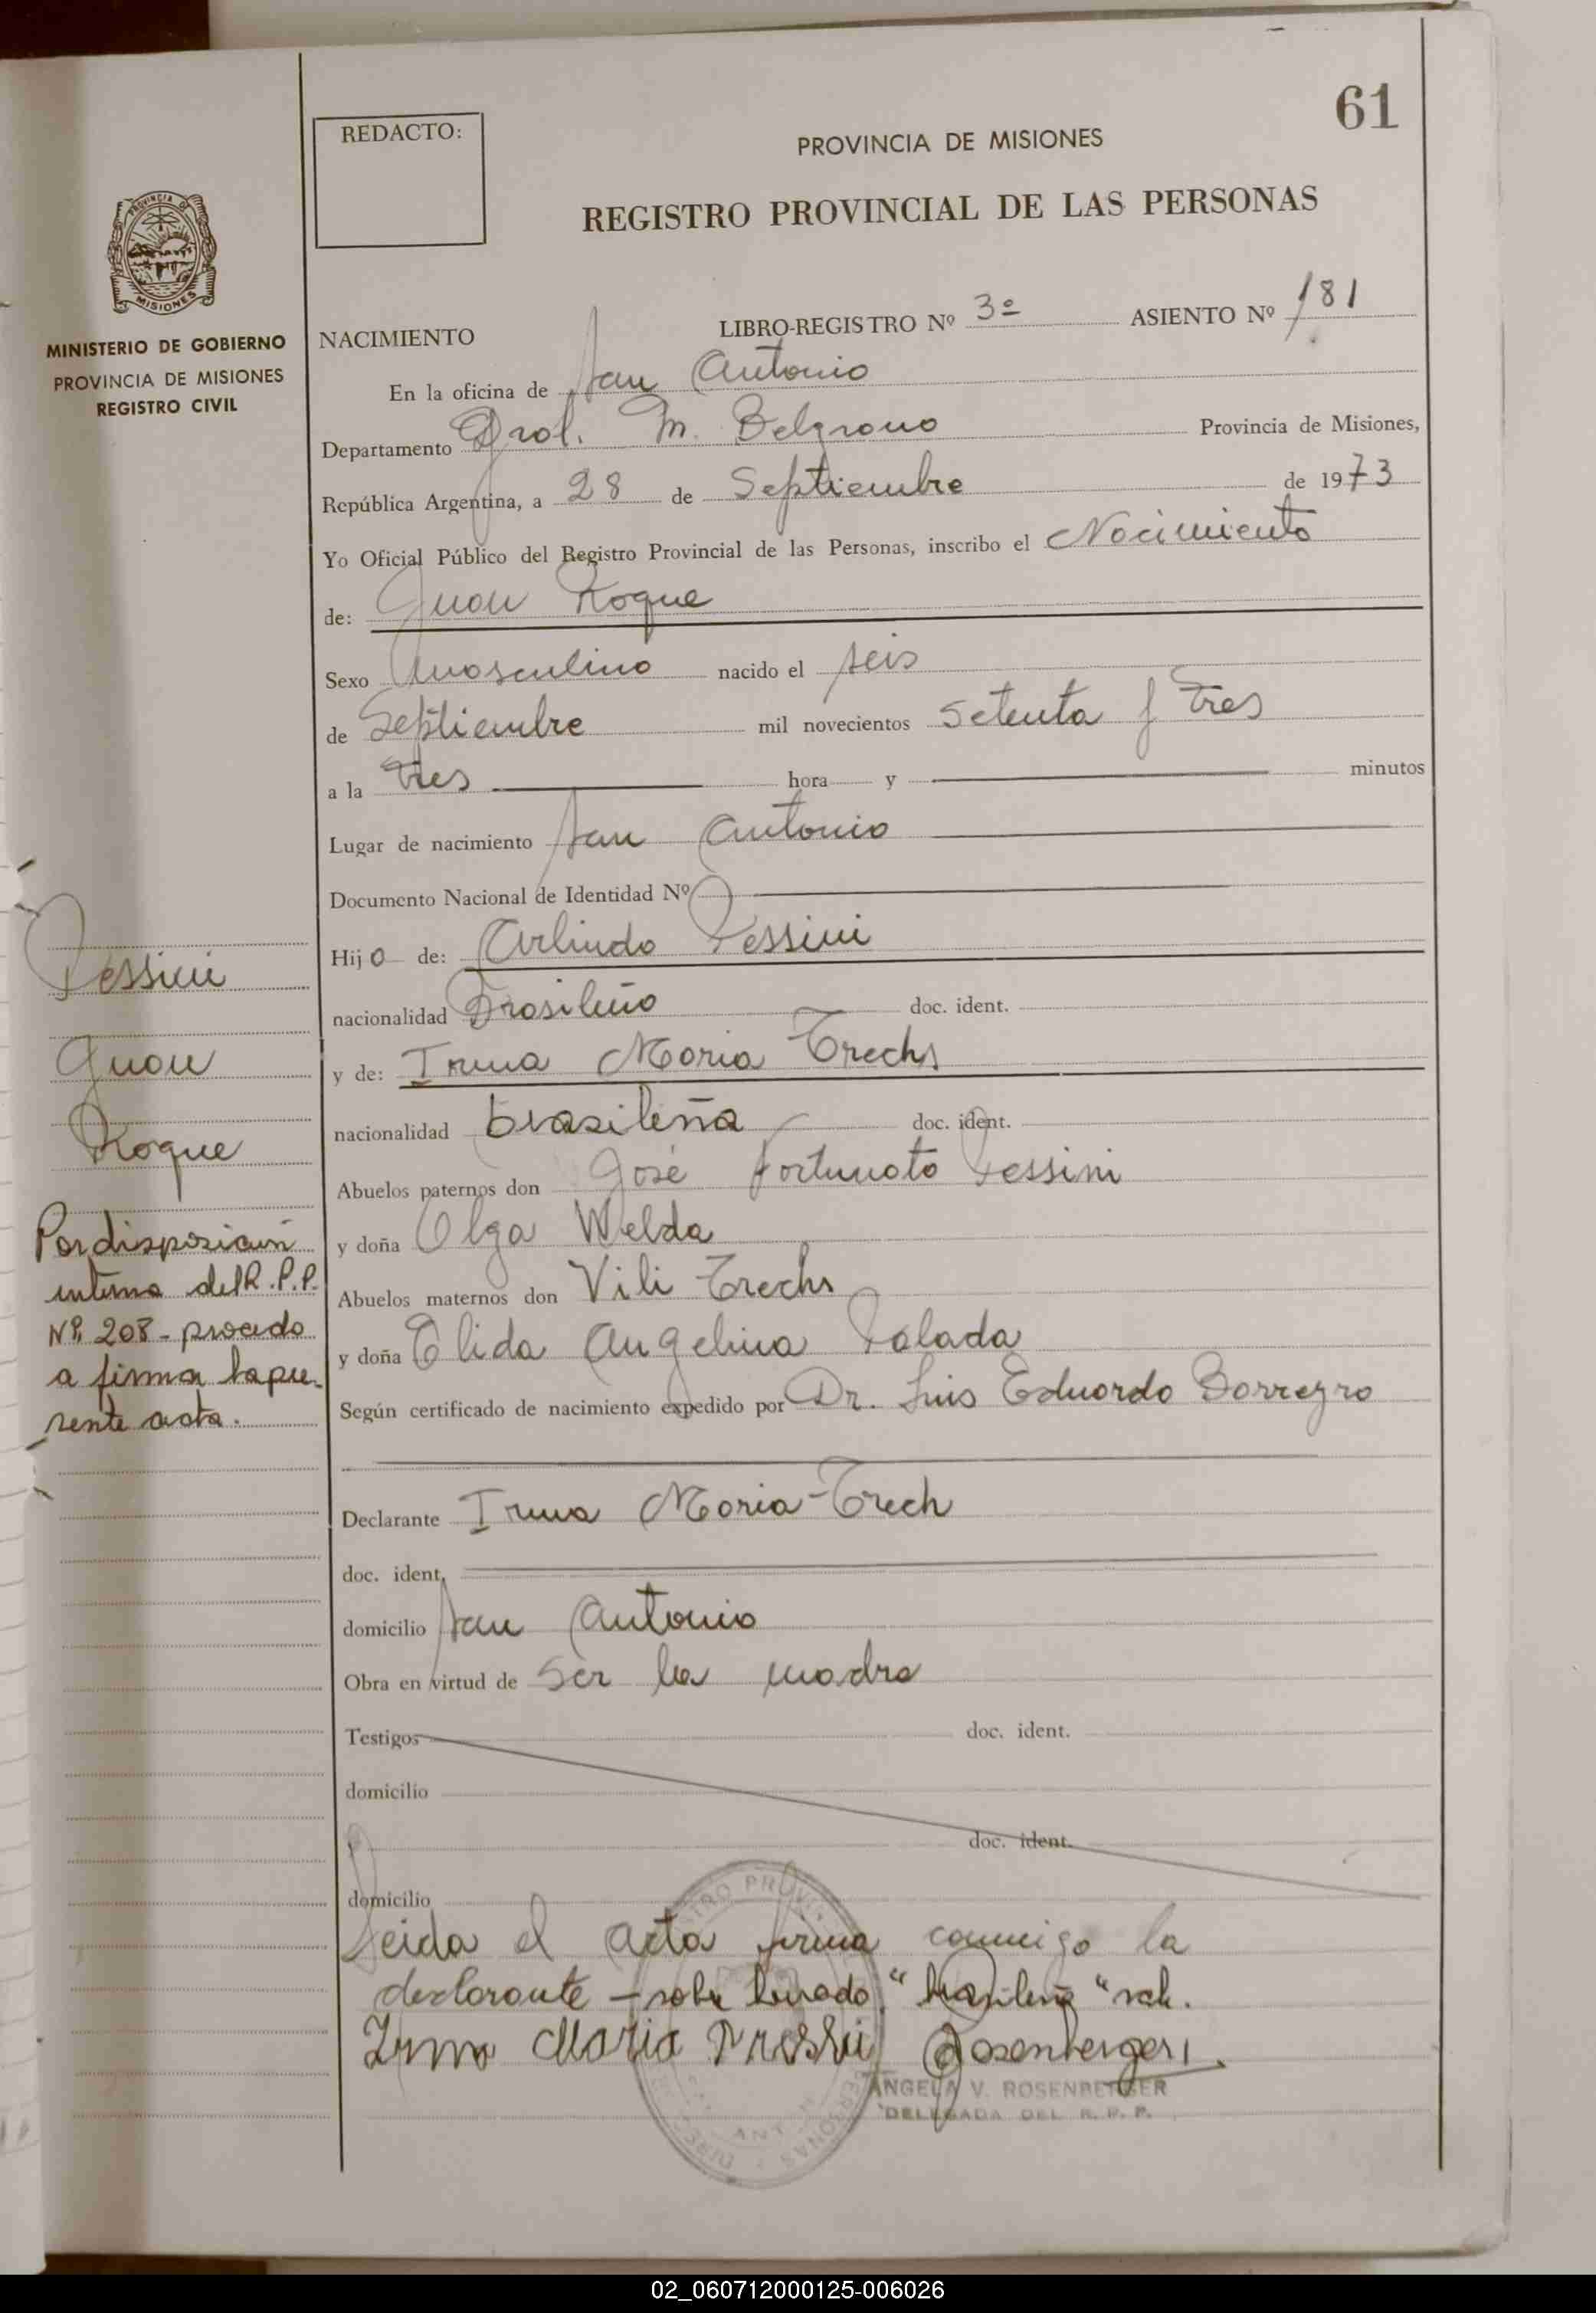 61
REDACTO:
PROVINCIA DE MISIONES
REGISTRO PROVINCIAL DE LAS PERSONAS
PROVINCIA DE
MISIONES
MINISTERIO DE GOBIERNO
PROVINCIA DE MISIONES
REGISTRO CIVIL
NACIMIENTO LIBRO-REGISTRO Nº 3º ASIENTO Nº 181
En la oficina de San Antonio
Departamento Gral. M. Belgrano Provincia de Misiones,
República Argentina, a 28 de Septiembre de 1973
Yo Oficial Público del Registro Provincial de las Personas, inscribo el Nacimiento
de: Juan Roque
Sexo Masculino nacido el seis
de Septiembre mil novecientos setenta y tres
a la tres hora y minutos
Lugar de nacimiento San Antonio
Documento Nacional de Identidad Nº
Hijo de: Arlindo Pessini
nacionalidad Brasileño doc. ident.
y de: Irma Maria Trechs
nacionalidad brasileña doc. ident.
Abuelos paternos don José Fortunato Pessini
y doña Olga Welda
Abuelos maternos don Vili Trechs
y doña Elida Angelina Salada
Según certificado de nacimiento expedido por Dr. Luis Eduardo Borregro
Declarante Irma Maria Trech
doc. ident.
domicilio San Antonio
Obra en virtud de ser la madre
Testigos doc. ident.
domicilio
doc. ident.
domicilio
Leida el acta firma conmigo la
declarante - sobre borrado: "brasileña" vale.
Irma Maria Rosenberger
ANGELA V. ROSENBERGER
DELEGADA DEL R. P. P.
Pessini
Juan
Roque
Por disposicion
interna del R.P.P.
Nº 208 - procedo
a firmar la pre-
sente acta.
02_060712000125-006026